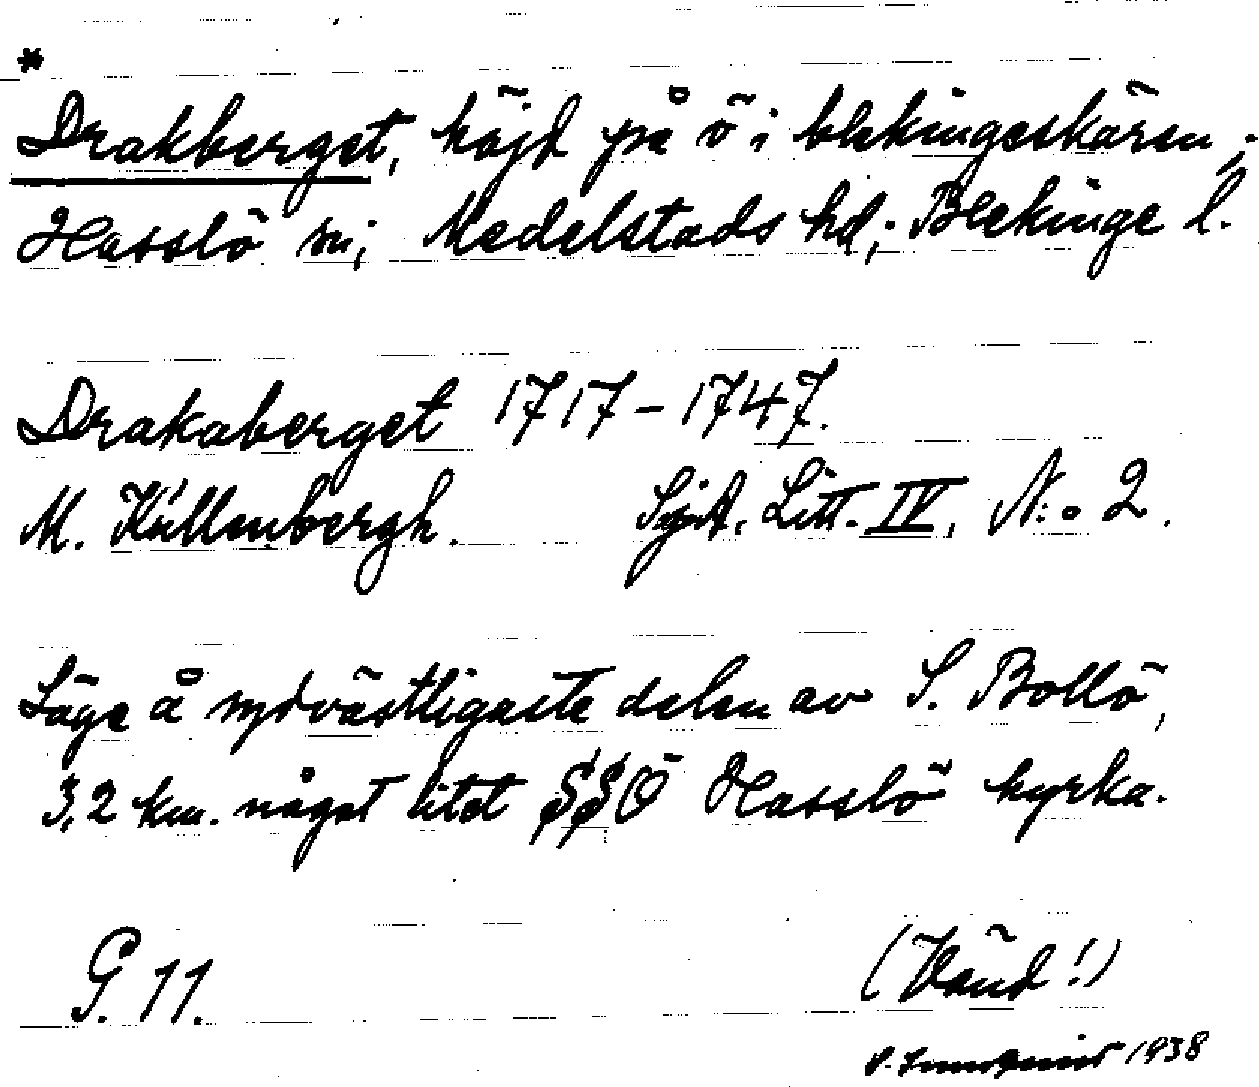 *
Drakberget, höjd på ö i blekingeskären;
Hasslö sn; Medelstads hd; Blekinge l.
Drakaberget 1717-1747.
M. Küllenbergh. Sjöd. Litt. IV. N:o 2.
Läge å sydvästligaste delen av S. Bollö,
3,2 km. något litet SSÖ Hasslö kyrka.
G. 11. (Vänd!)
1938